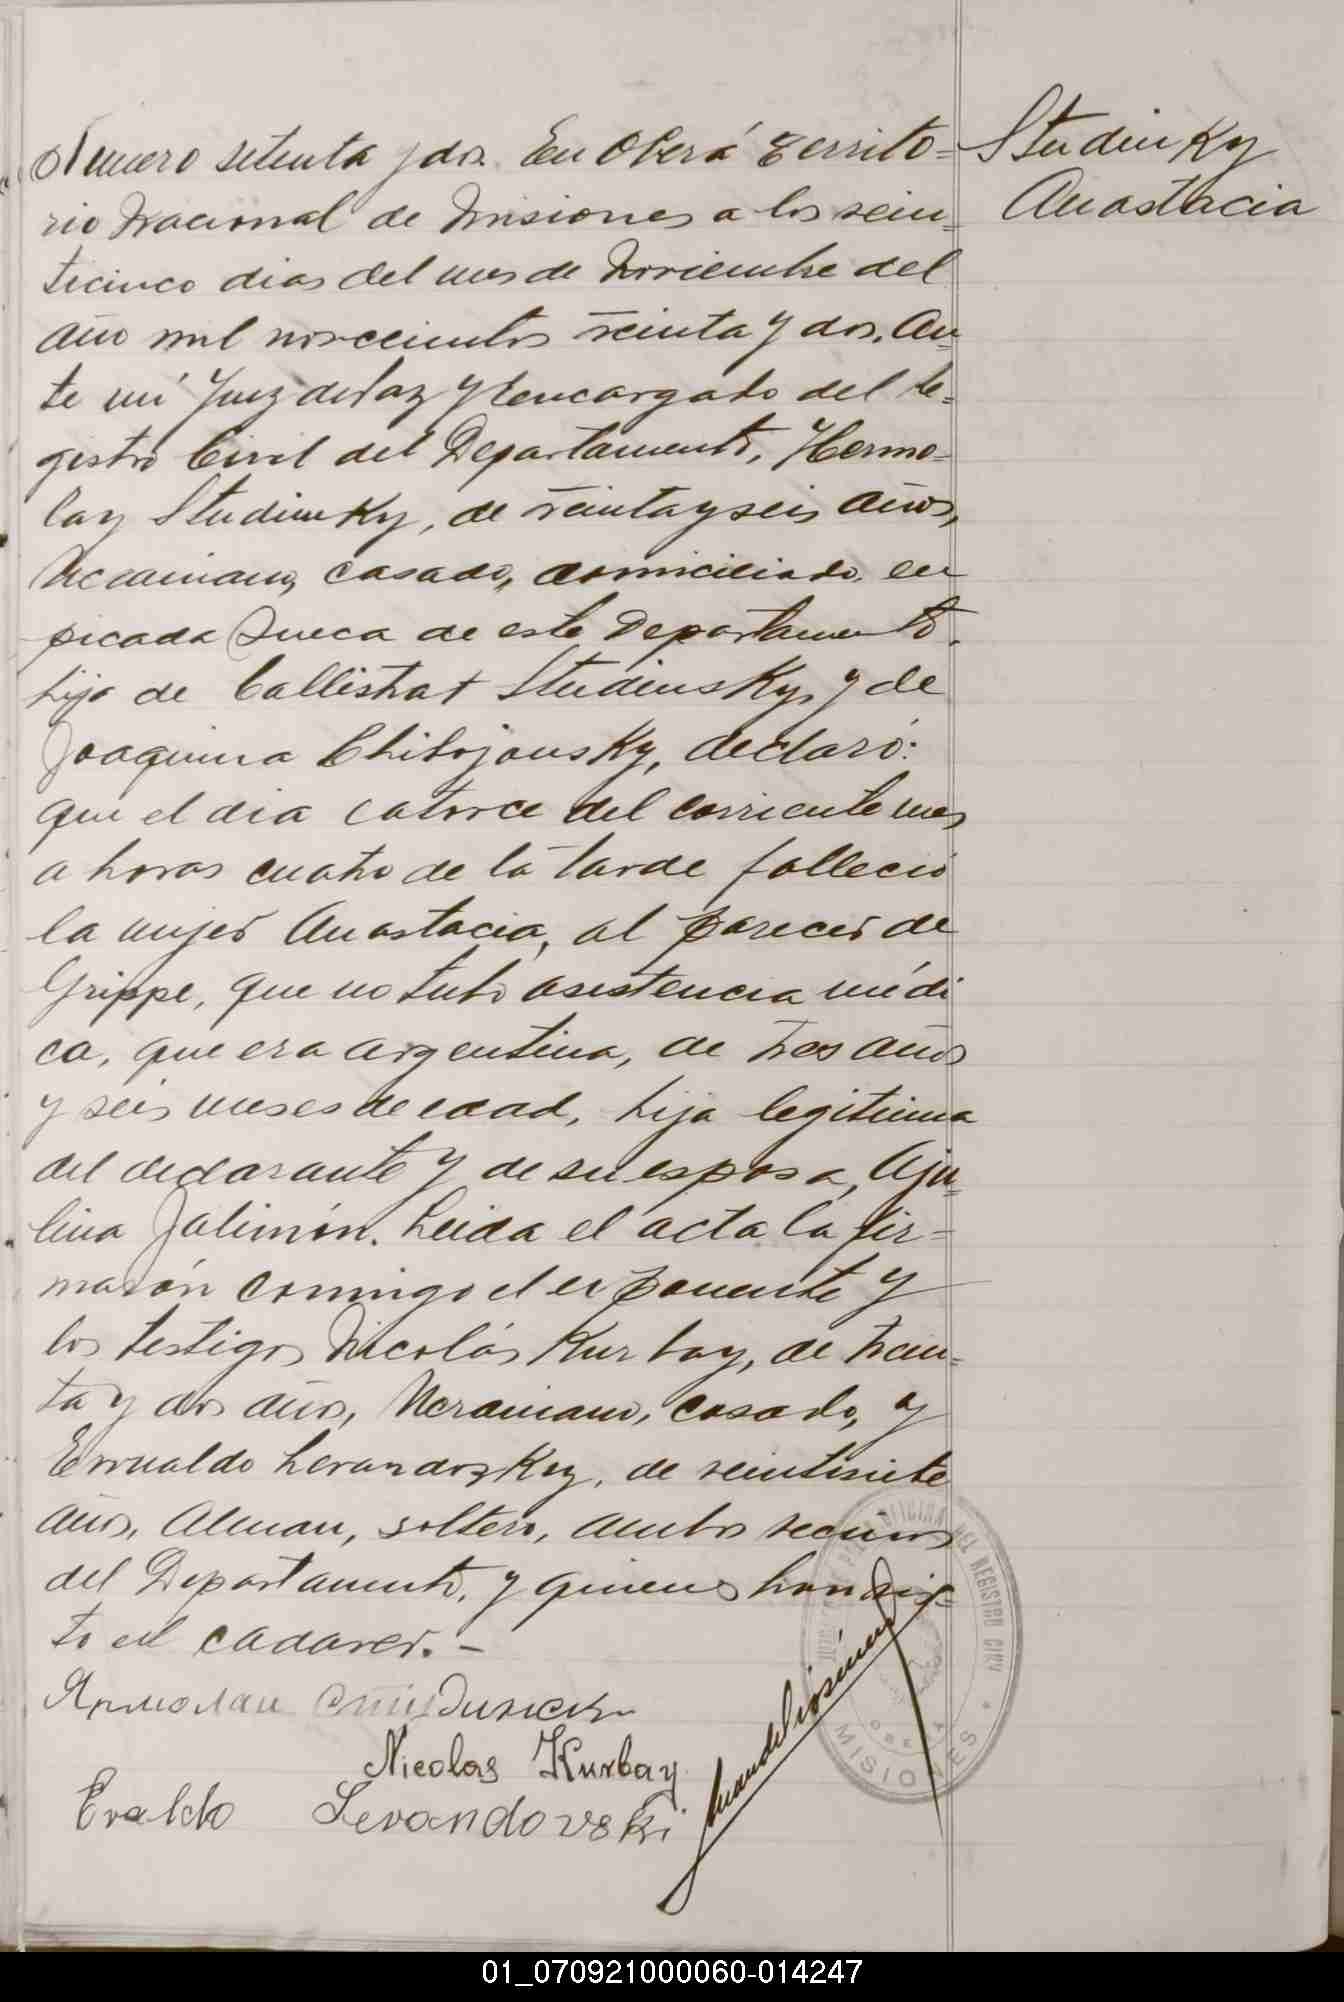 Numero setenta y dos. En Oberá Territo=
rio Nacional de Misiones a los vein=
ticinco dias del mes de Noviembre del
año mil novecientos treinta y dos, an=
te mi Juez de Paz y Encargado del Re=
gistro Civil del Departamento, Hermo=
lay Studinsky, de treinta y seis años,
Ucraniano, casado, domiciliado en
picada Sueca de este Departamento,
hijo de Callistrat Studiensky, y de
Joaquina Chitojousky, declaró:
que el dia catorce del corriente mes
a horas cuatro de la tarde falleció
la mujer Anastacia, al parecer de
Grippe, que no tubo asistencia médi
ca, que era argentina, de tres años
y seis meses de edad, hija legitima
del declarante y de su esposa, Aju=
lina Jalimón. Leida el acta la fir=
marón conmigo el exponente y
los testigos Nicolás Kurbay, de trein=
ta y dos años, Ucraniano, casado, y
Ervualdo Levandozky, de veintisiete
años, Aleman, soltero, ambos vecinos
del Departamento, y quienes han vis=
to el cadaver. -
Ярмолай Студински
Nicolas Kurbay
Evaldo Levandovski
Studinsky
Anastacia
OFICINA DEL REGISTRO CIVIL
OBERA
MISIONES
01_070921000060-014247